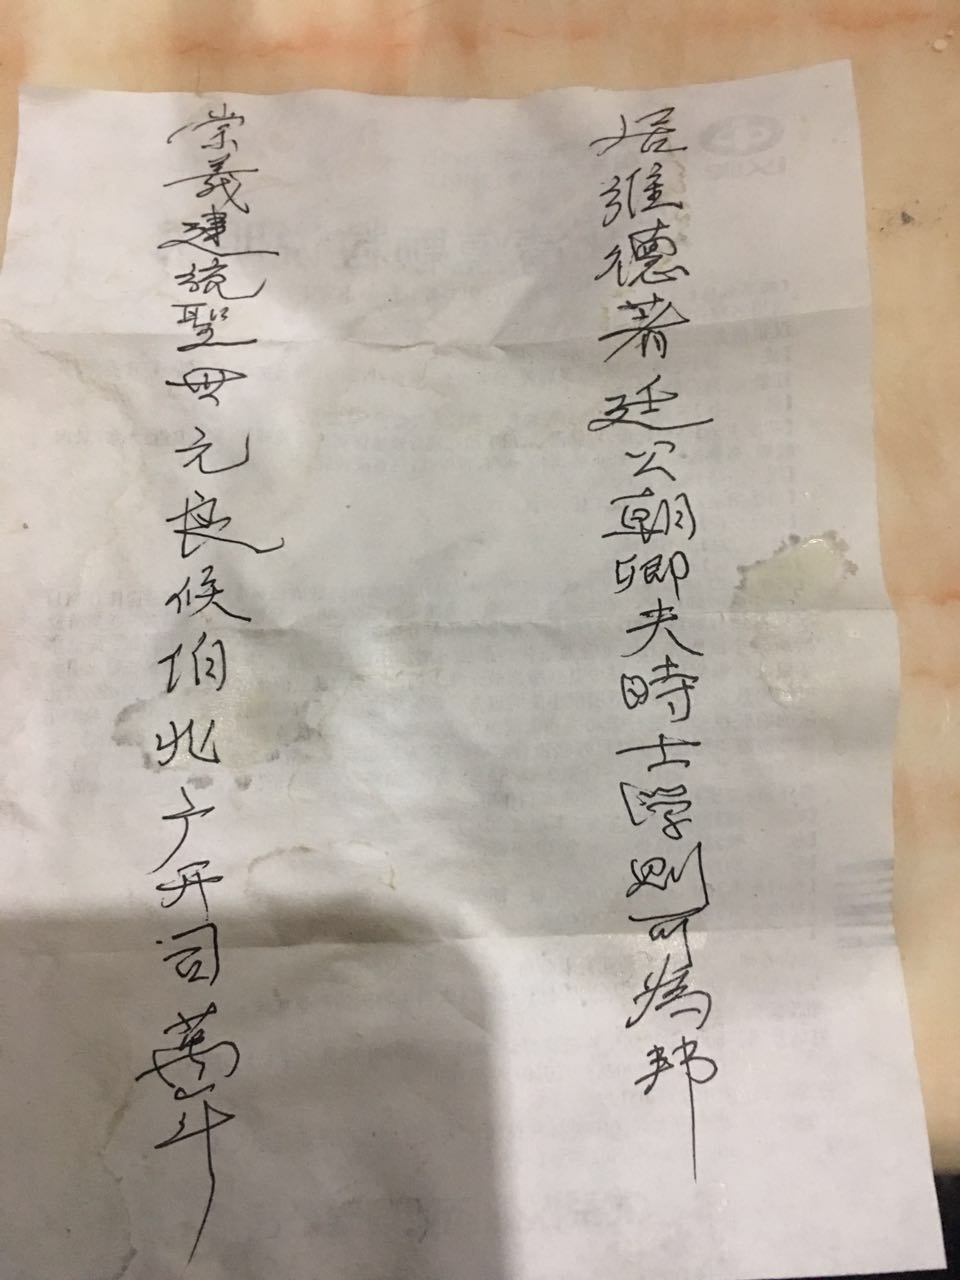 居維德著廷公朝卿夫時士學則可為邦
崇義建統聖世元良候伯兆广开司萬年